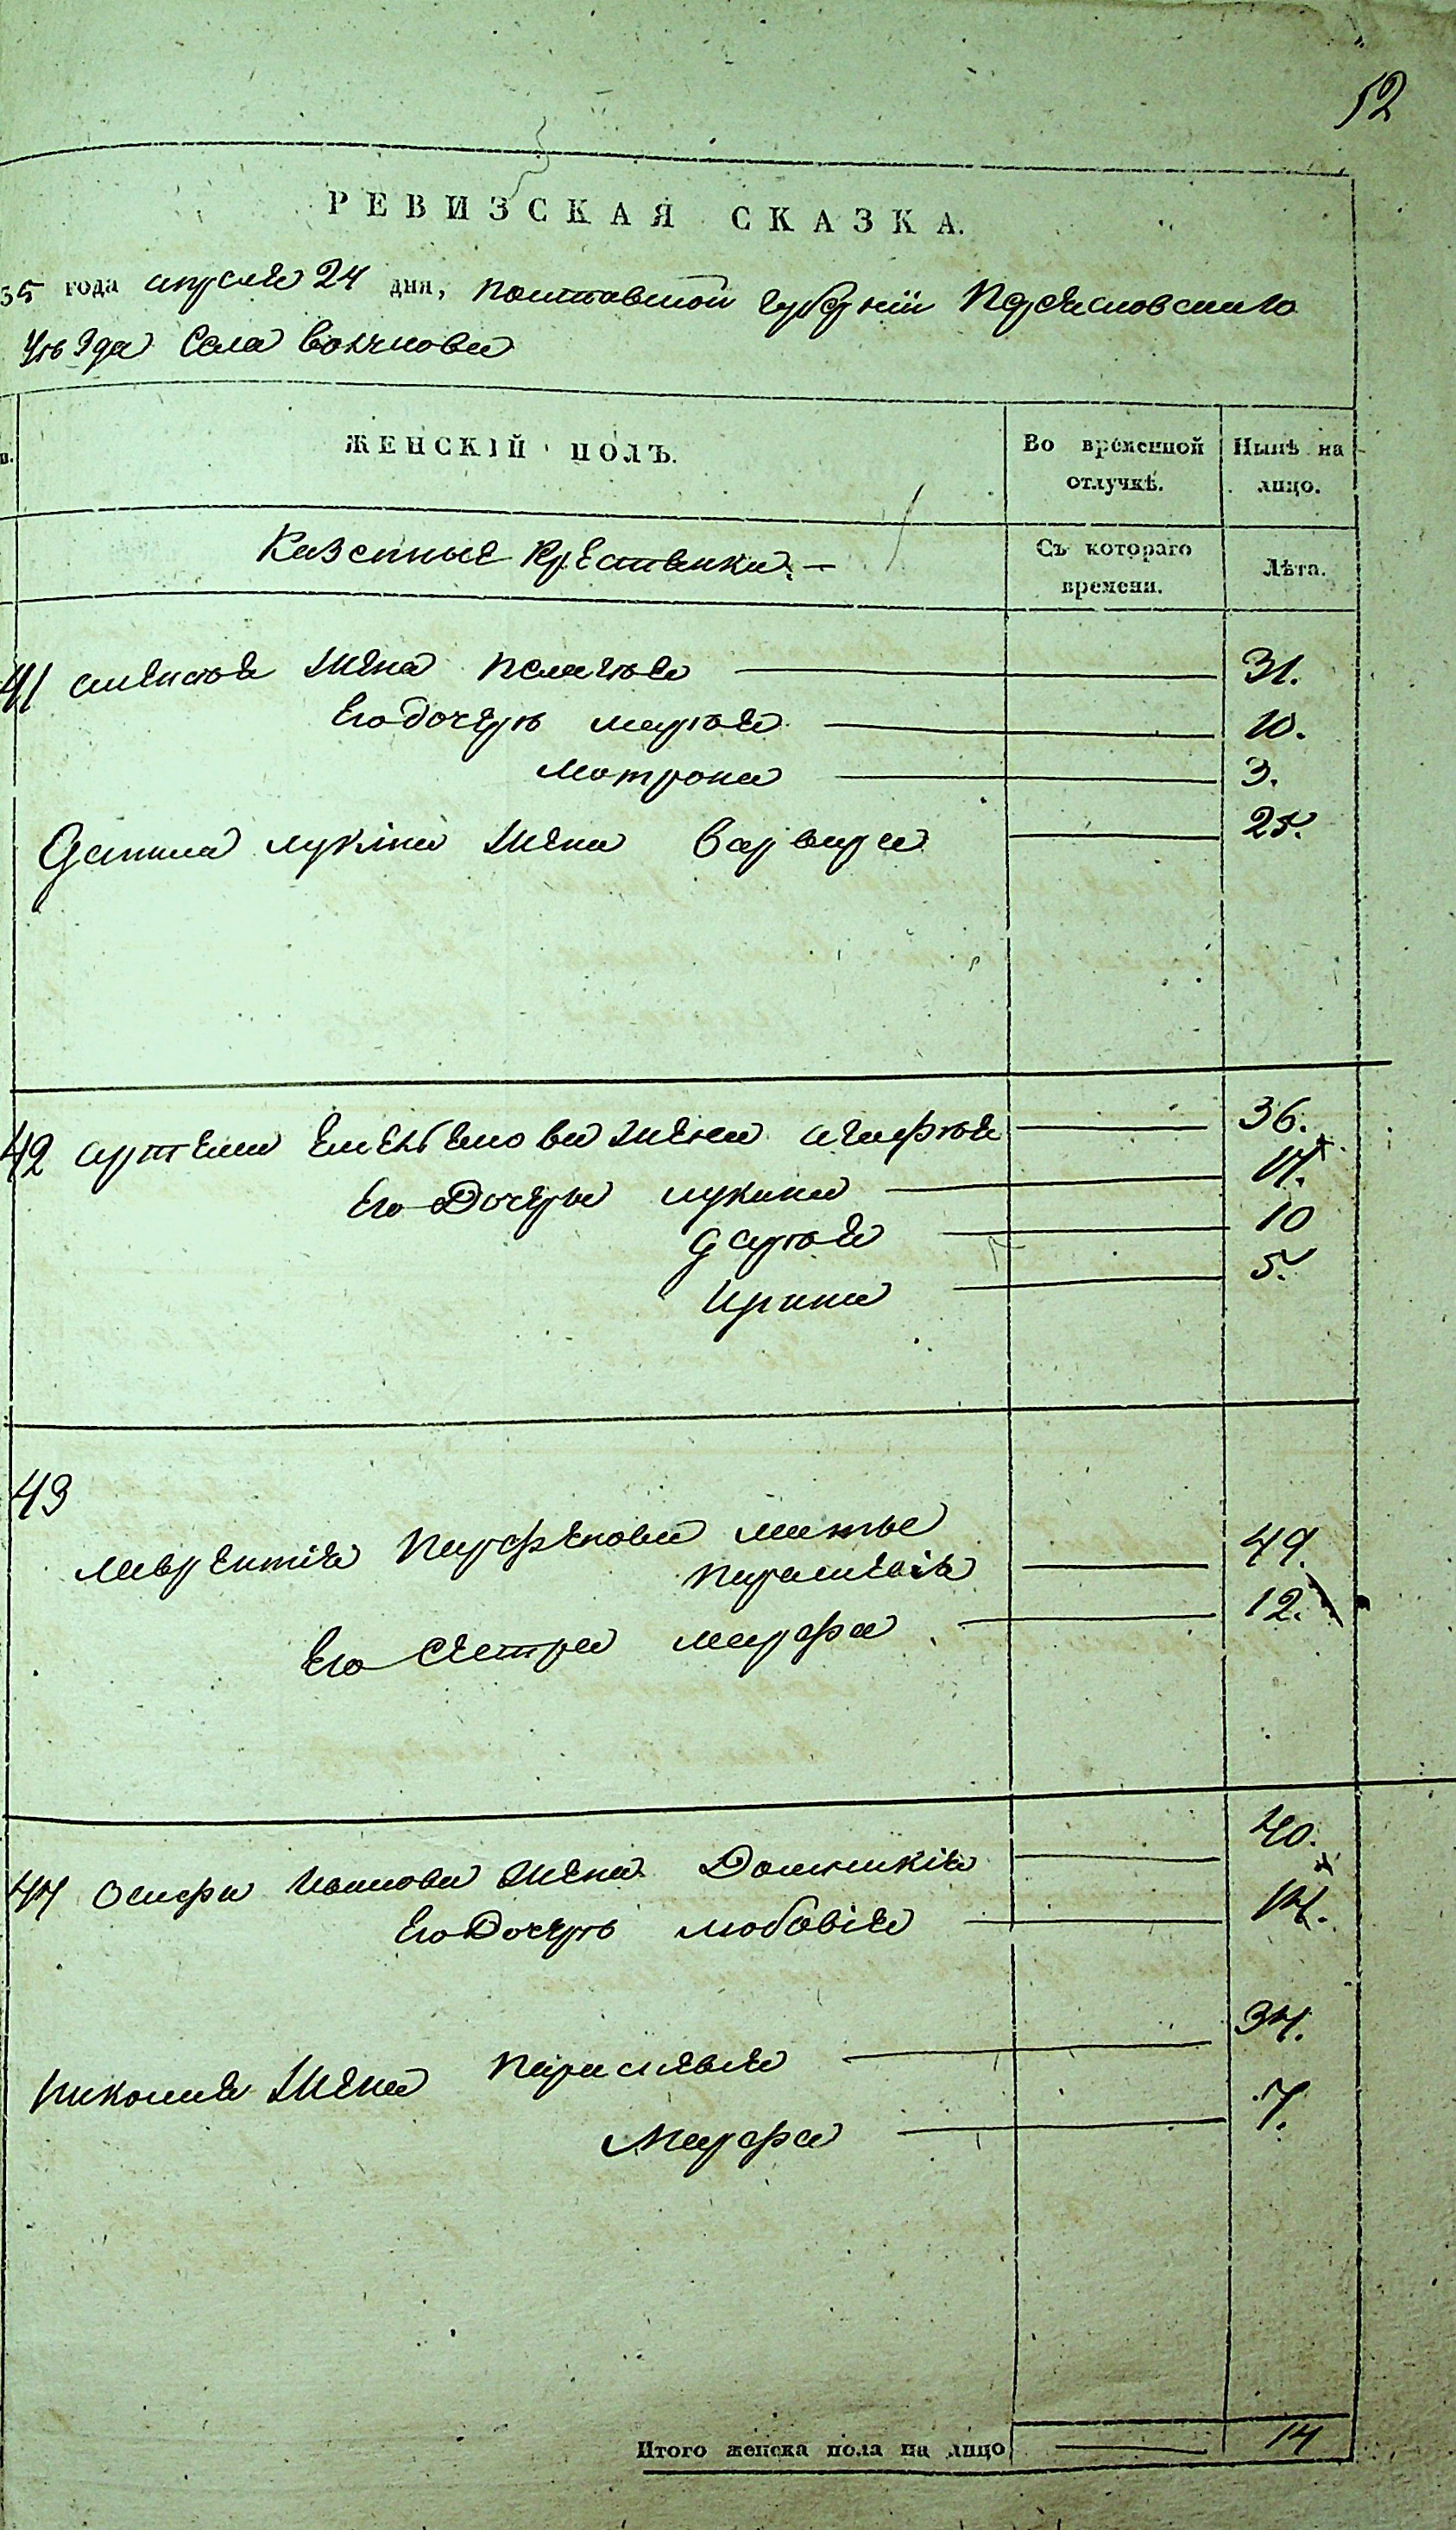 52
РЕВИЗСКАЯ СКАЗКА.
35 года апреля 24 дня, Полтавской губернии Переясловского
Уезда Села вовчкова
ЖЕНСКІЙ ПОЛЪ.
Во временной отлучкѣ.
Нынѣ на лицо.
Казенные крестьянки. —
Съ котораго времени.
Лѣта.
41 алексея жена Пелагея — 31.
его дочерь марья — 10.
мотрона — 3.
Данила лукіна жена варвара — 25.
42 артема жена агафья — 36.
его Дочеры лукина — 17.
дарья — 10
Ирина — 5.
43
лаврентія Парфенова матье
параскевія — 49.
его сестра марфа — 12.
44 осифа жена Домникія — 40.
его Дочерь любовія — 14.
николая жена параскевья — 34.
Марфа — 7.
Итого женска пола на лицо — 14